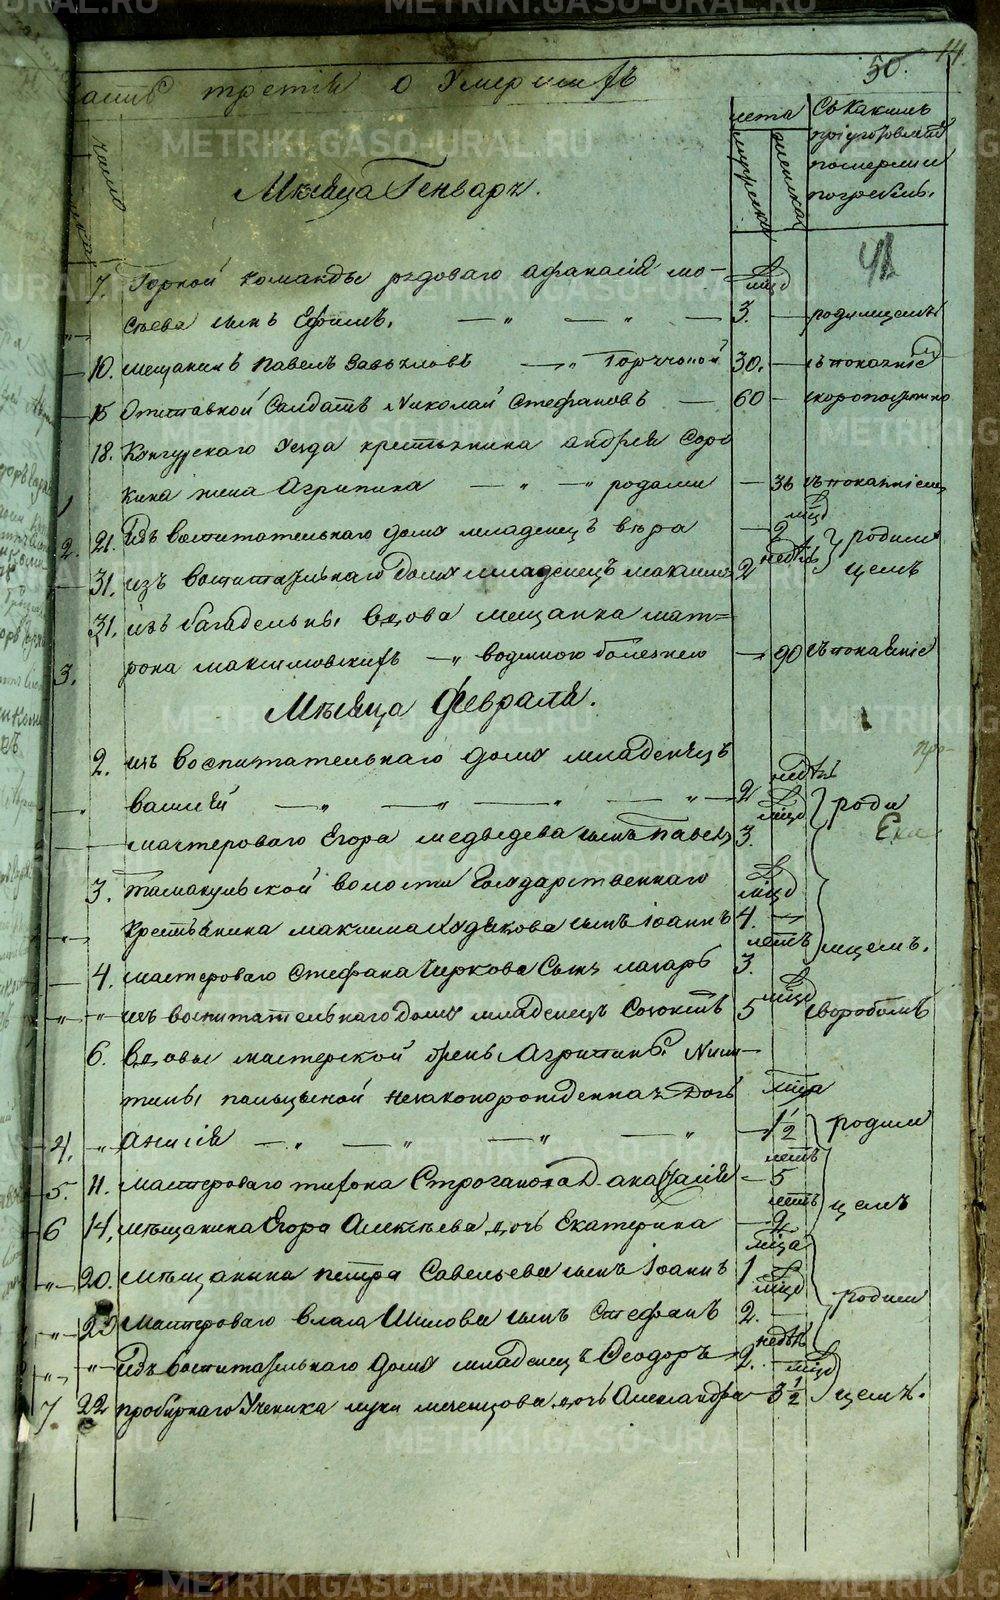 14
50.
часть третія о Умершихъ
число
лета
мужеска
женска
Съ какимъ
пріуготовленіе
померли и
погребены.
Мѣсяца Генваря.
41
7. Горной команды рядоваго афанасія мо-
мцд
сѣева сынъ Ефимъ. 3. родимцемъ
10. мещанинъ Павелъ Завьяловъ Горячкой 30. съ покаяніем
15 Отставной Салдатъ Николай Стефановъ 60 скоропостижно
18. Кунгурскаго Уезда крестьянина андрея Соро
кина жена Агрипина родами 36 съ покаяніем
мцд
2. 21. Изъ воспитательнаго дому младенецъ вѣра 2 родим
недѣль
31. изъ воспитательнаго дому младенецъ максимъ 2 цемъ
31. изъ багадельны вдова мещанка мат-
3. рона максимовскихъ водяною болезнею 90 съ покаяніе
Мѣсяца Февраля.
2. изъ воспитательнаго дому младенецъ
недѣль
василій 2 роди
мцд
мастероваго Егора медведева сынъ Павелъ 3.
3. таманульской волости Государственнаго
мцд
крестьянина максима Худякова сынъ Іоаннъ 4.
летъ
мцемъ.
4. мастероваго Стефана Чиркова Сынъ лазарь 3.
мцд
изъ воспитательнаго дому младенецъ 5 своробомъ
6. Вдовы мастерской жены Агрипины Ники-
тины пальцывой незаконорожденная дочь
мца
4. анисія 1 1/2 родим
летъ
5. 11. мастероваго тихона Строганова Д. анастасія 5
летъ
цемъ
6 14, мѣщанина Егора Алексѣева дочь Екатерина 2
мѣца
20. мѣщанина петра Савельева сынъ Іоаннъ 1
мцд
родим
22 мастероваго власа Шилова сынъ Стефанъ 2.
недѣль
Изъ воспитательнаго дому младенецъ Ѳеодоръ 2.
мцд
7 22 пробирнаго Ученика луки меченцова дочь Александра 3 1/2 цемъ.
METRIKI.GASO-URAL.RU